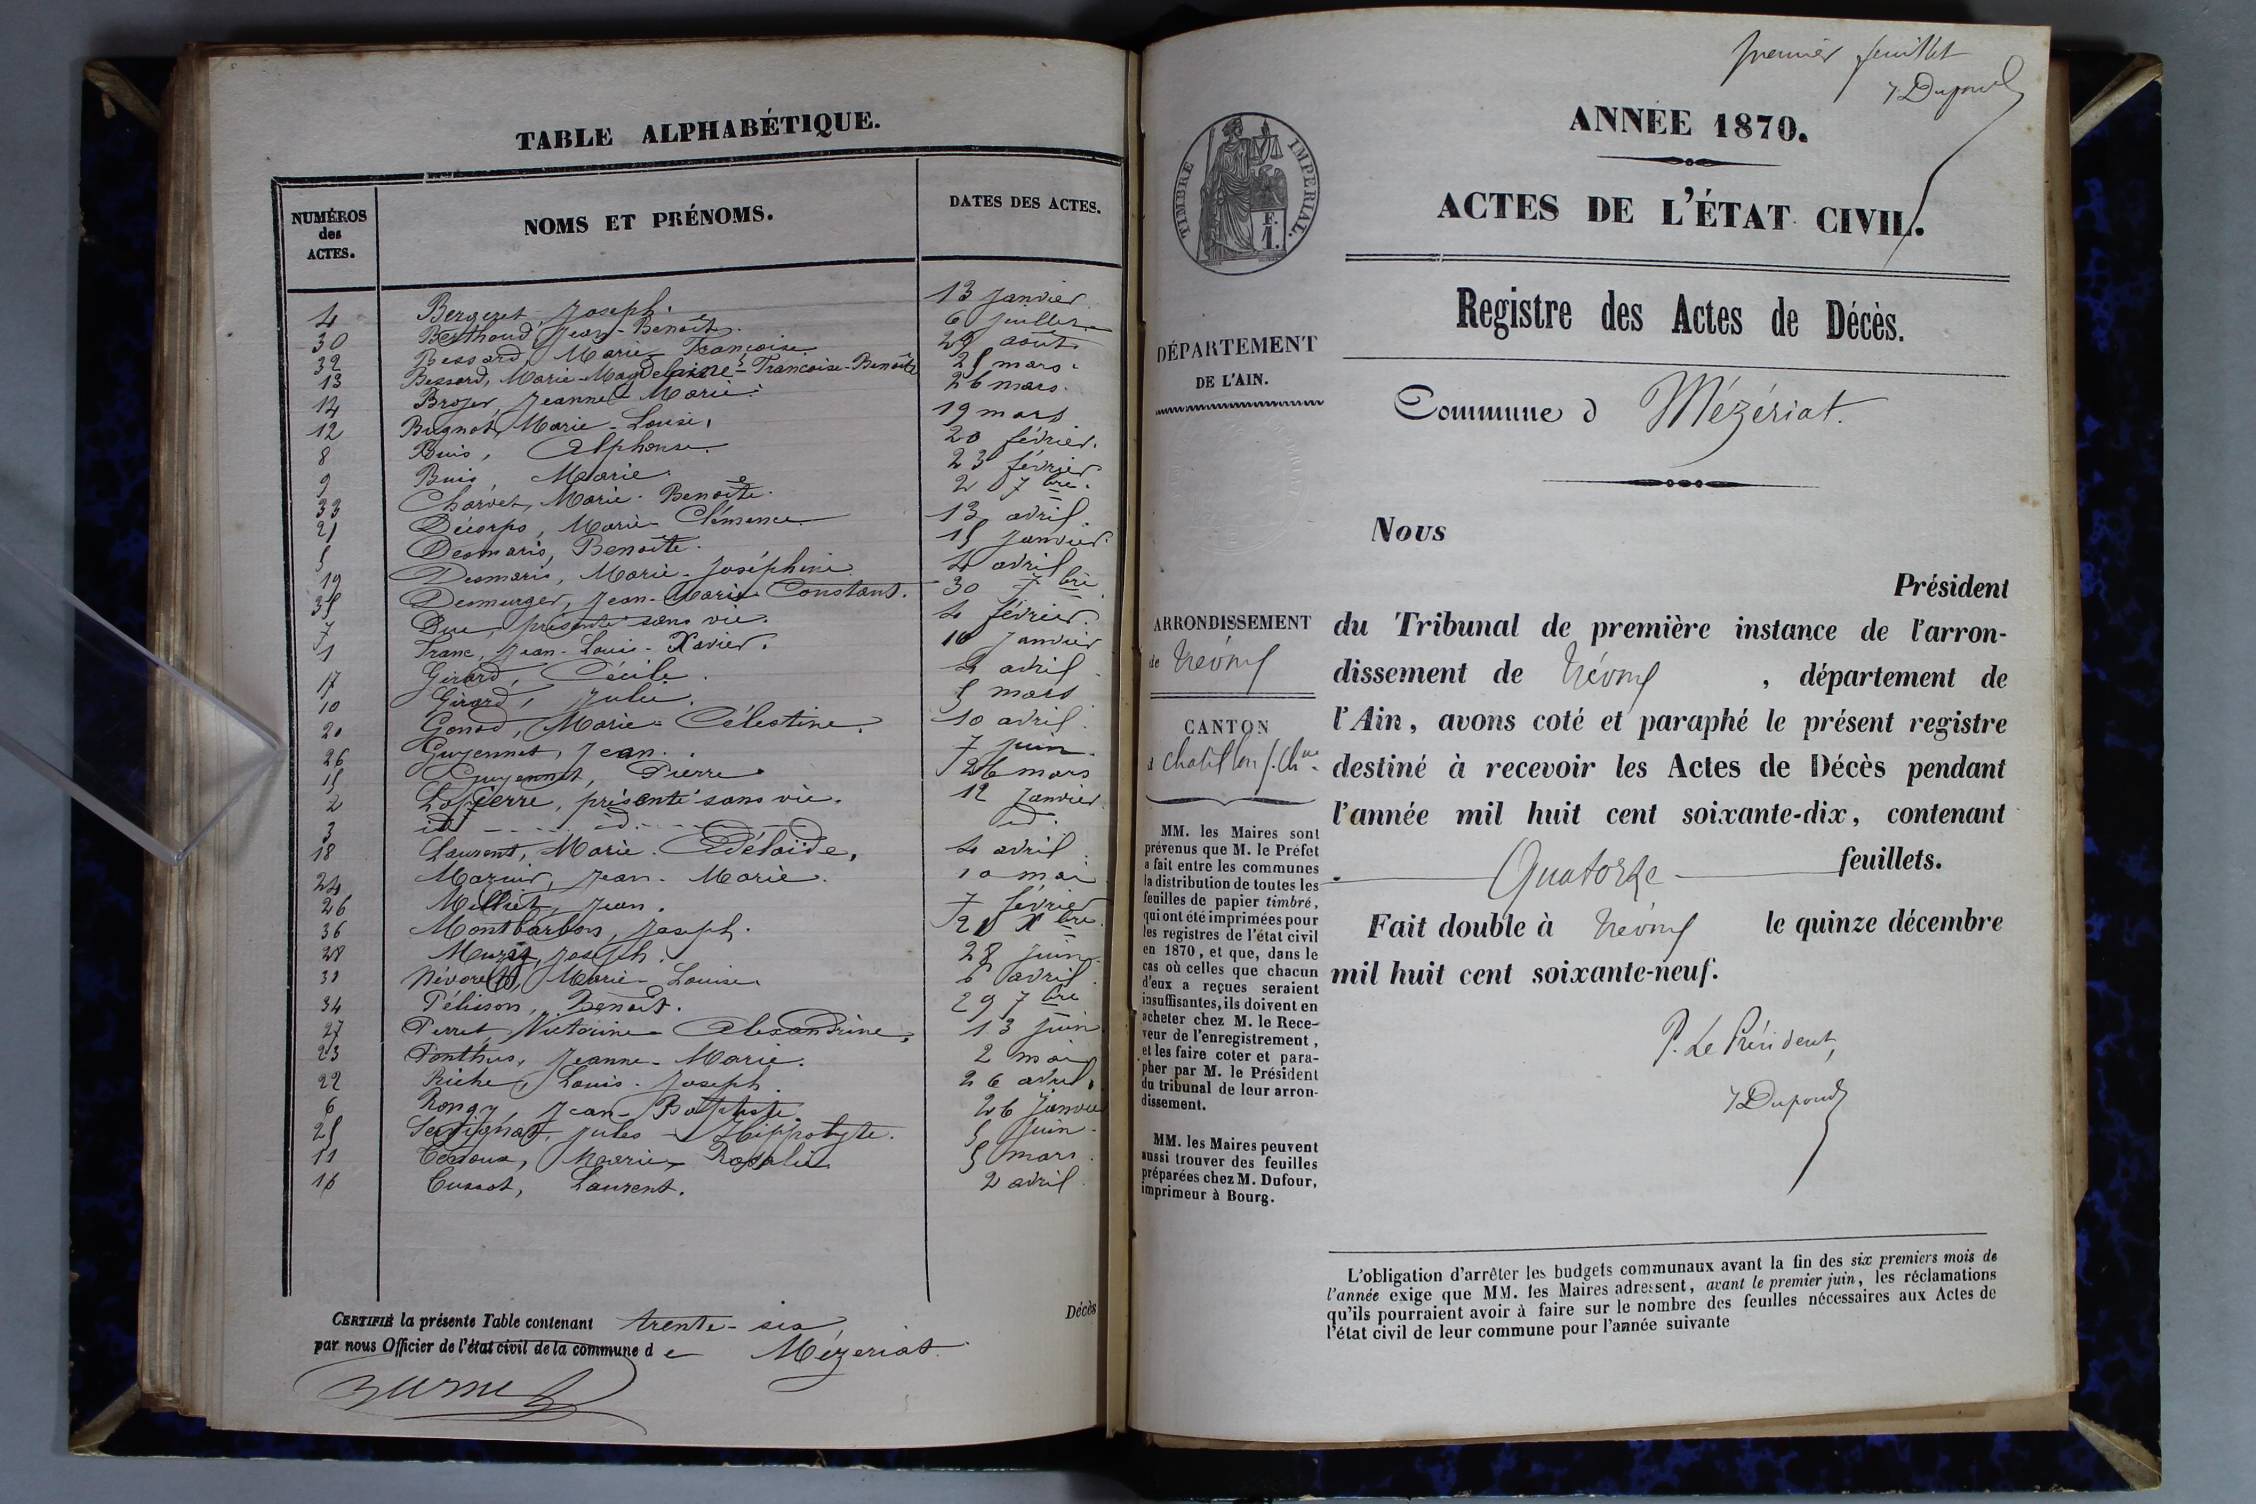 TABLE ALPHABÉTIQUE.
NUMÉROS des ACTES.
NOMS ET PRÉNOMS.
DATES DES ACTES.
4 Bergeret Joseph. 13 janvier
30 Berthoud, Jean-Benoît. 6 juillet
32 Bessard, Marie Françoise 29 août
13 Bessard, Marie-Magdelaine-Françoise-Benoîte 25 mars.
14 Broyer Jeanne Marie. 26 mars.
12 Bugnot, Marie-Louise, 19 mars
8 Buis, Alphonse. 20 février.
9 Buis Marie. 23 février
33 Charvet, Marie-Benoîte. 2 7bre.
21 Décorps, Marie-Clémence. 13 avril.
5 Desmaris, Benoîte. 15 janvier.
19 Desmaris, Marie-Joséphine 4 avril
35 Desmurger, Jean-Marie Constant. 30 7bre
7 Duc, présenté sans vie. 4 février.
1 Franc, Jean-Louis-Xavier. 10 janvier
17 Girard, Cécile. 2 avril
10 Girard, Julie. 5 mars
20 Gonod, Marie-Célestine. 10 avril.
26 Guyennet, Jean. 7 juin.
15 Guyennet, Pierre 26 mars
2 Lapierre, présenté sans vie. 12 janvier.
3 id id. id.
18 Laurent, Marie-Adélaïde, 4 avril
24 Marnir, Jean-Marie. 10 mai
26 Milliet, Jean. 7 février
36 Montbarbon, Joseph. 21 Xbre.
28 Joseph. 28 juin
Marie-Louise. 6 avril.
34 Pélisson, Benoît. 29 7bre
27 Perret, Victorine Alexandrine, 13 juin
23 Ponthus, Jeanne-Marie. 2 mai
22 Riche, Louis-Joseph. 26 avril.
6 Rongy, Jean-Baptiste. 26 janvier
25 Servignat, Jules-Hippolyte. 5 juin.
11 Marie-Rosalie 5 mars.
16 Cussot, Laurent. 2 avril.
Décès
CERTIFIÉ la présente Table contenant trente-six
par nous Officier de l'état civil de la commune de Mézeriat.
premier feuillet
Dupond
TIMBRE IMPÉRIAL.
F. 1.
ANNÉE 1870.
ACTES DE L'ÉTAT CIVIL.
Registre des Actes de Décès.
DÉPARTEMENT
DE L'AIN.
Commune d Mézériat.
Nous
Président
du Tribunal de première instance de l'arron-
dissement de Trévoux, département de
l'Ain, avons coté et paraphé le présent registre
destiné à recevoir les Actes de Décès pendant
l'année mil huit cent soixante-dix, contenant
Quatorze feuillets.
Fait double à Trévoux le quinze décembre
mil huit cent soixante-neuf.
P. Le Président,
Dupond
ARRONDISSEMENT
de Trévoux
CANTON
d chatillon s. Chne
MM. les Maires sont
prévenus que M. le Préfet
a fait entre les communes
la distribution de toutes les
feuilles de papier timbré,
qui ont été imprimées pour
les registres de l'état civil
en 1870, et que, dans le
cas où celles que chacun
d'eux a reçues seraient
insuffisantes, ils doivent en
acheter chez M. le Rece-
veur de l'enregistrement,
et les faire coter et para-
pher par M. le Président
du tribunal de leur arron-
dissement.
MM. les Maires peuvent
aussi trouver des feuilles
préparées chez M. Dufour,
imprimeur à Bourg.
L'obligation d'arrêter les budgets communaux avant la fin des six premiers mois de
l'année exige que MM. les Maires adressent, avant le premier juin, les réclamations
qu'ils pourraient avoir à faire sur le nombre des feuilles nécessaires aux Actes de
l'état civil de leur commune pour l'année suivante